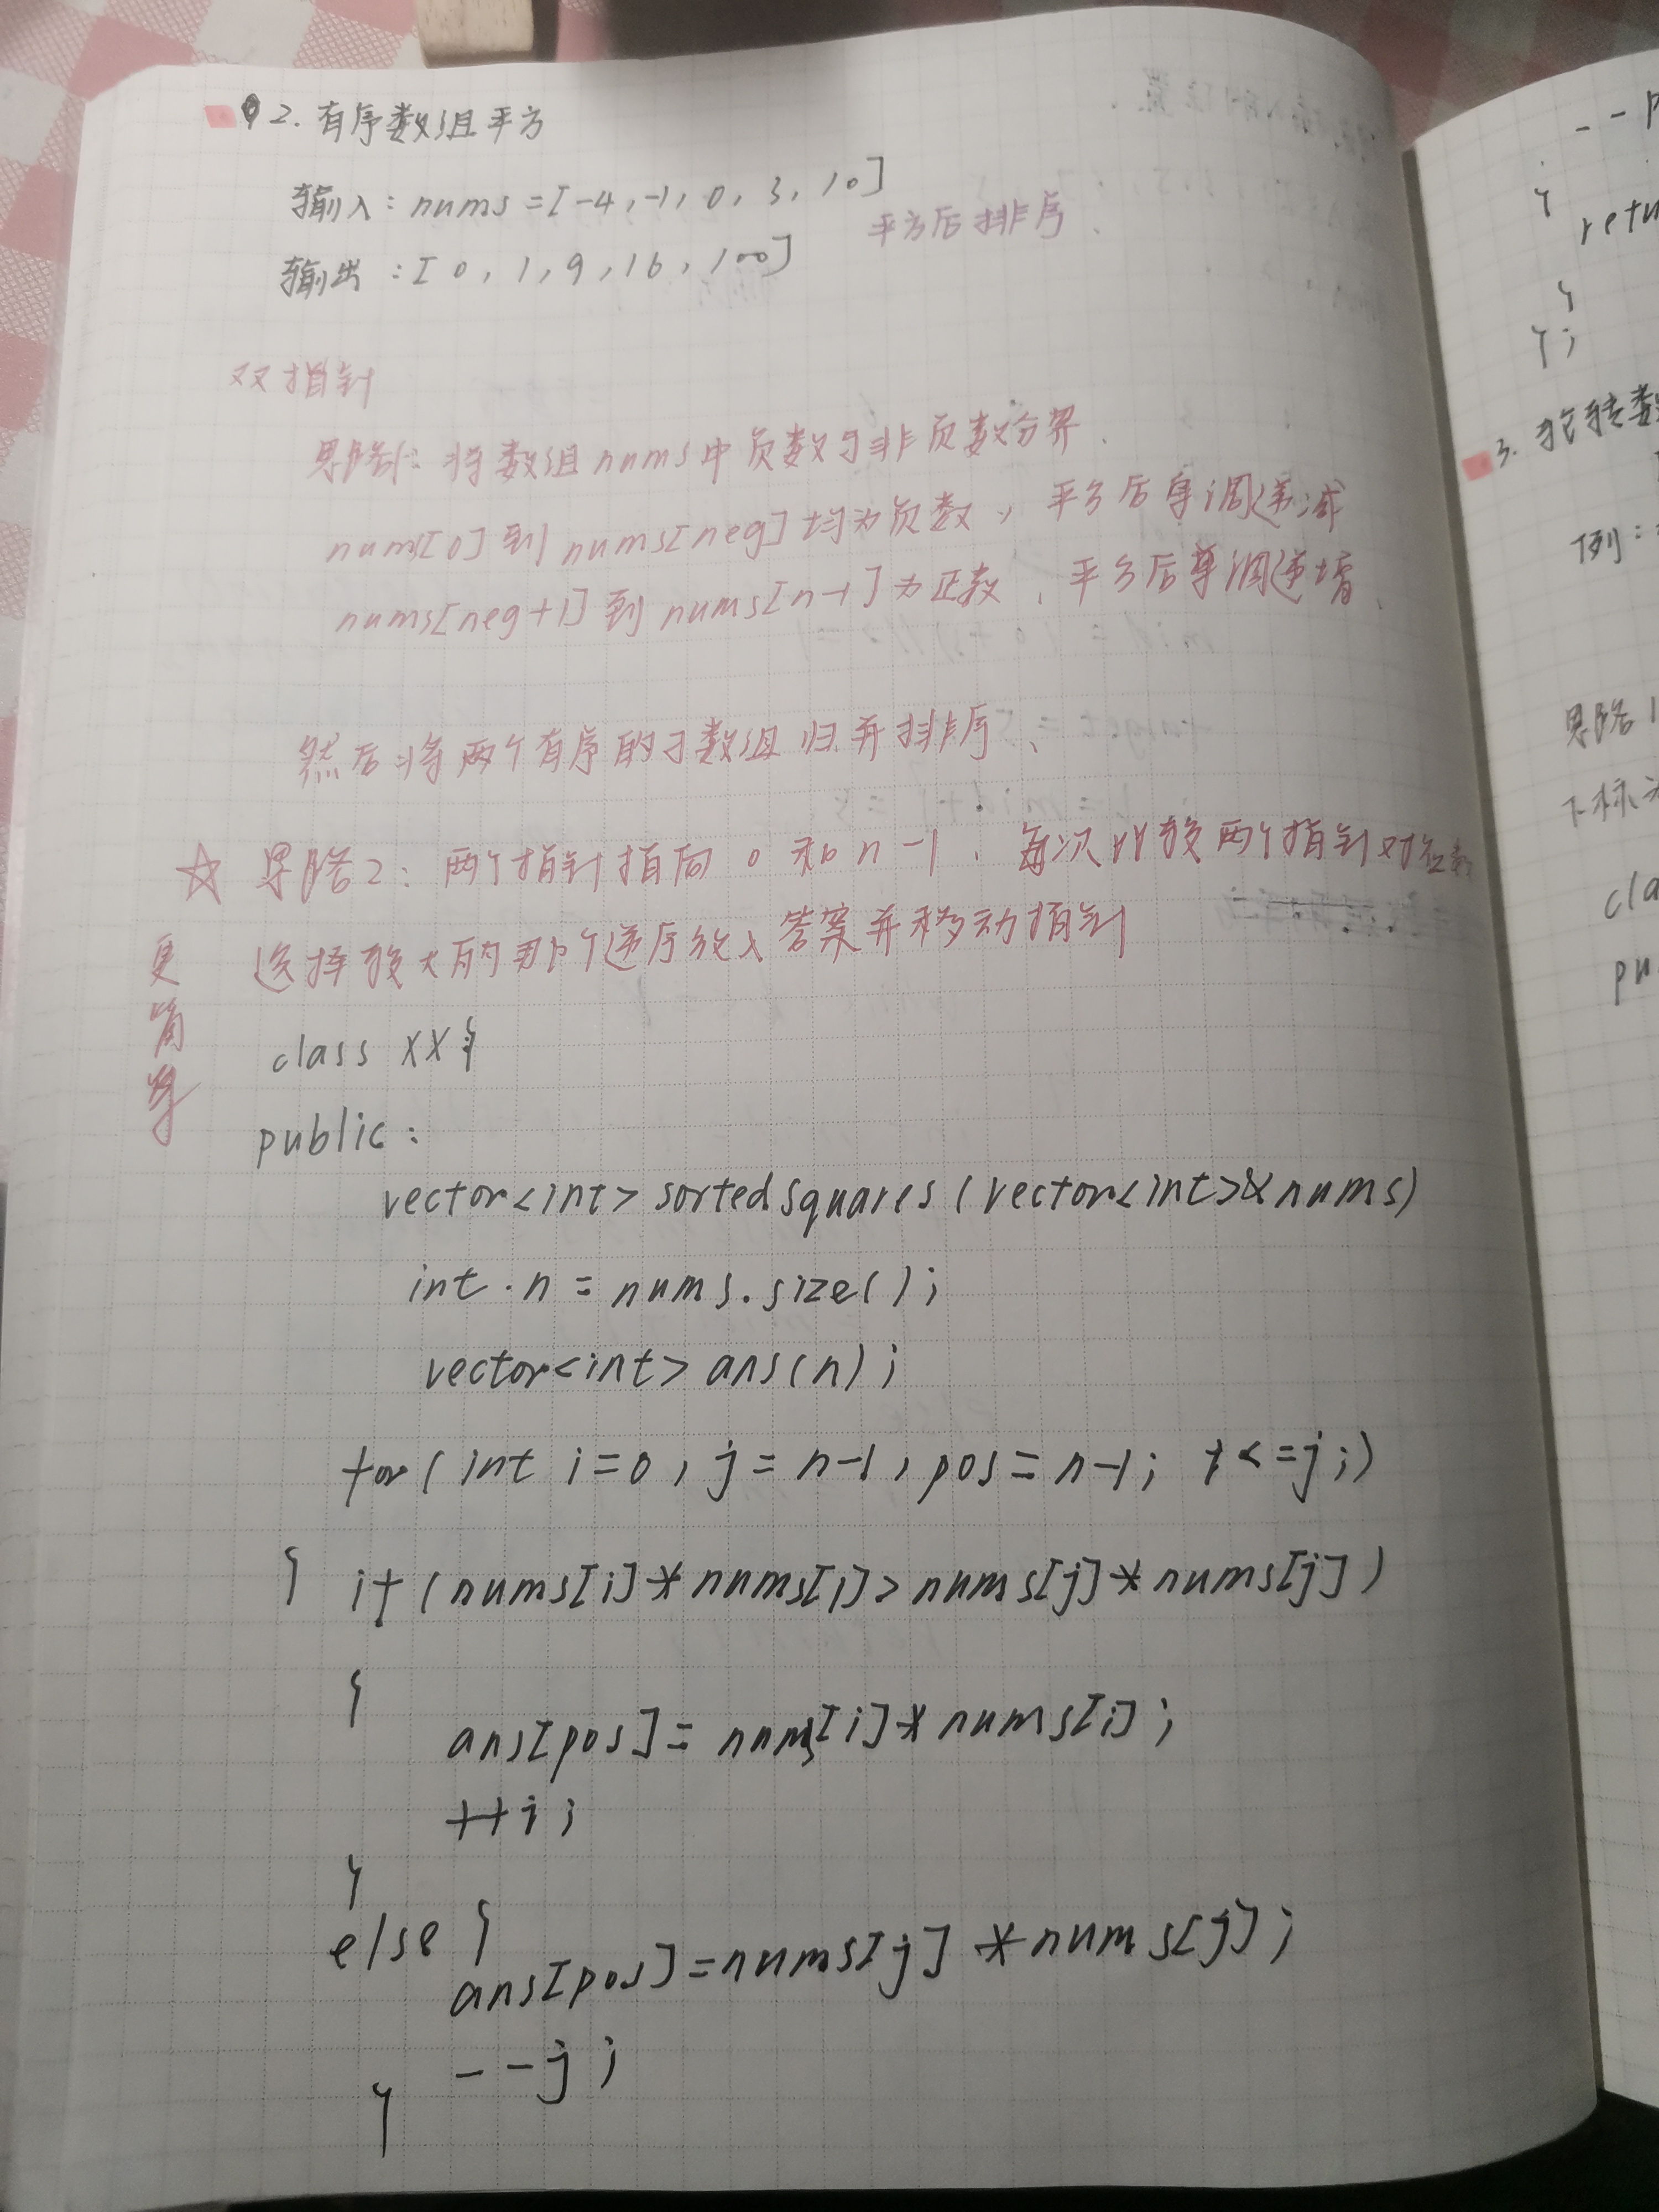 2. 有序数组平方
输入: nums = [-4, -1, 0, 3, 10]
平方后排序.
输出: [0, 1, 9, 16, 100]
双指针
思路1: 将数组nums中负数与非负数分界.
nums[0]到nums[neg]均为负数, 平方后单调递减
nums[neg+1]到nums[n-1]为正数, 平方后单调递增.
然后将两个有序的子数组归并排序、
☆ 思路2: 两个指针指向 0 和 n-1. 每次比较两个指针对应数
选择较大的那个逆序放入答案并移动指针
更简单
class XX{
public:
vector<int> sortedSquares(vector<int>& nums)
int n = nums.size();
vector<int> ans(n);
for( int i=0, j=n-1, pos=n-1; i<=j;)
{ if (nums[i]*nums[i]>nums[j]*nums[j])
{
ans[pos]= nums[i]*nums[i];
++i;
}
else {
ans[pos]=nums[j]*nums[j];
--j;
}
--
}
retu
}
};
3.
例:
思路1
下标
cla
pu